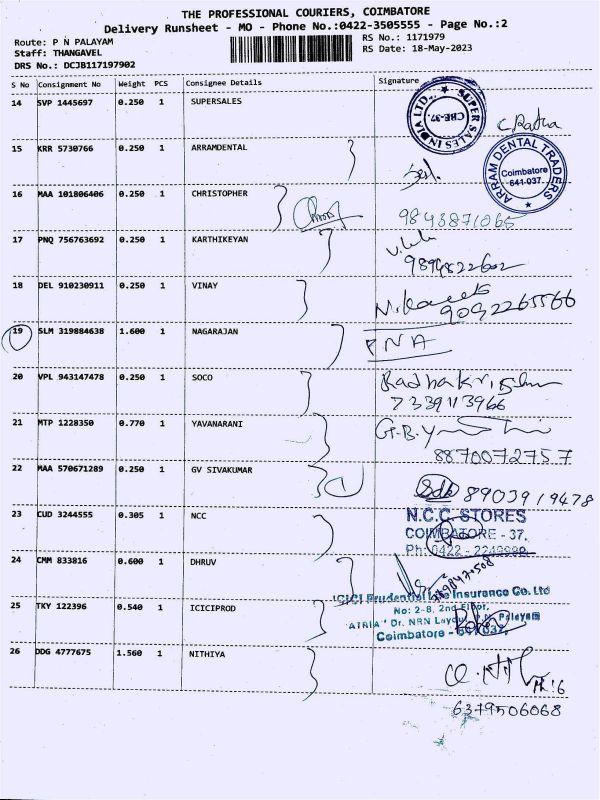 THE PROFESSIONAL COURIERS, COIMBATORE
Delivery Runsheet - MO - Phone No.:0422-3505555 - Page No.:2
Route: P N PALAYAM
RS No.: 1171979
Staff: THANGAVEL
RS Date: 18-May-2023
DRS No.: DCJB117197902
S No Consignment No Weight PCS Consignee Details Signature
14 SVP 1445697 0.250 1 SUPERSALES
SUPER SALES INDIA LTD. CBE-37.
15 KRR 5730766 0.250 1 ARRAMDENTAL
ARRAM DENTAL TRADERS Coimbatore 641-037.
16 MAA 101806406 0.250 1 CHRISTOPHER
9843871065
17 PNQ 756763692 0.250 1 KARTHIKEYAN
9894822602
18 DEL 910230911 0.250 1 VINAY
9092265566
19 SLM 319884638 1.600 1 NAGARAJAN PNA
20 VPL 943147478 0.250 1 SOCO Radhakrishn
7339113966
21 MTP 1228350 0.770 1 YAVANARANI
8870072757
22 MAA 570671289 0.250 1 GV SIVAKUMAR 1 8903919478
23 CUD 3244555 0.305 1 NCC
N.C.C. STORES
COIMBATORE - 37.
Ph: 0422 -
24 CMM 833816 0.600 1 DHRUV
ICICI Prudential Life Insurance Co. Ltd
25 TKY 122396 0.540 1 ICICIPROD
No: 2-8, 2nd Floor,
"ATRIA" Dr. NRN Layout P.N. Palayam
Coimbatore - 641 037.
26 DDG 4777675 1.560 1 NITHIYA
6379506068